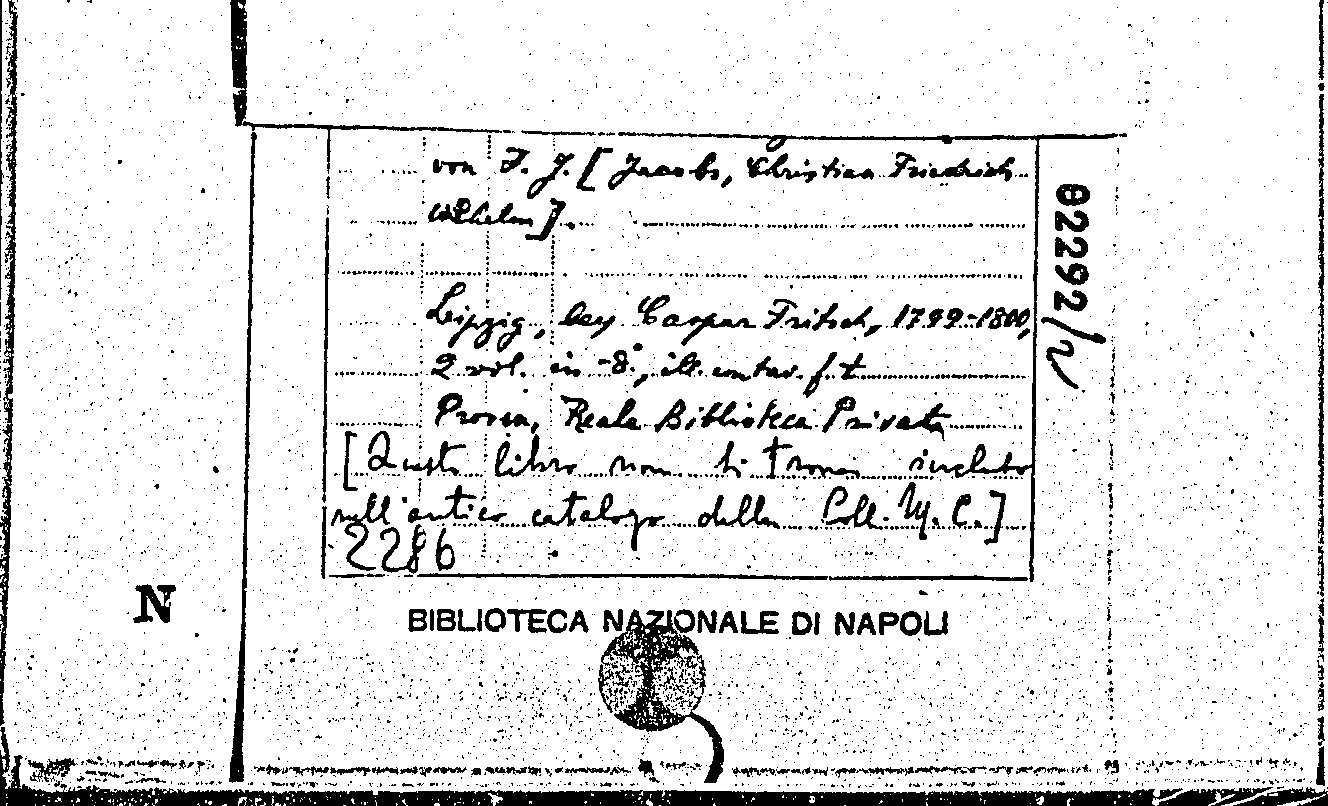 von F. J. [Jacobs, Christian Friedrich
Wilhelm].
Leipzig, bey Caspar Fritsch, 1799-1800,
2 vol. in -8°, ill. con tav. f. t.
Proven, Reale Biblioteca Privata
[Questo libro non si trova incluso
nell'antico catalogo della Coll. M. C.]
2286
02292/2
N
BIBLIOTECA NAZIONALE DI NAPOLI